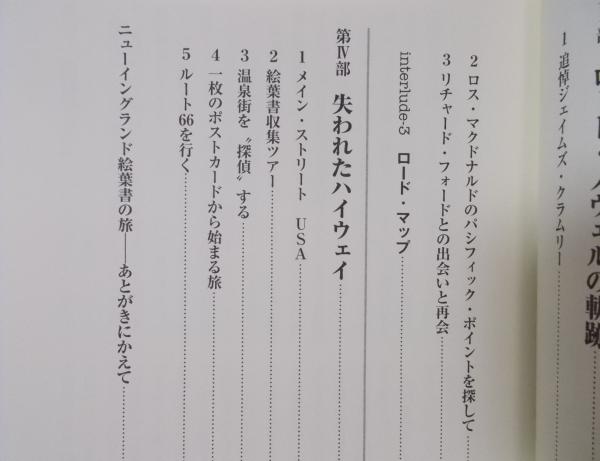 ロード・ノヴェルの軌跡
1 追悼ジェイムズ・クラムリー
2 ロス・マクドナルドのパシフィック・ポイントを探して
3 リチャード・フォードとの出会いと再会
interlude-3 ロード・マップ
第Ⅳ部 失われたハイウェイ
1 メイン・ストリート USA
2 絵葉書収集ツアー
3 温泉街を〝探偵〟する
4 一枚のポストカードから始まる旅
5 ルート66を行く
ニューイングランド絵葉書の旅――あとがきにかえて